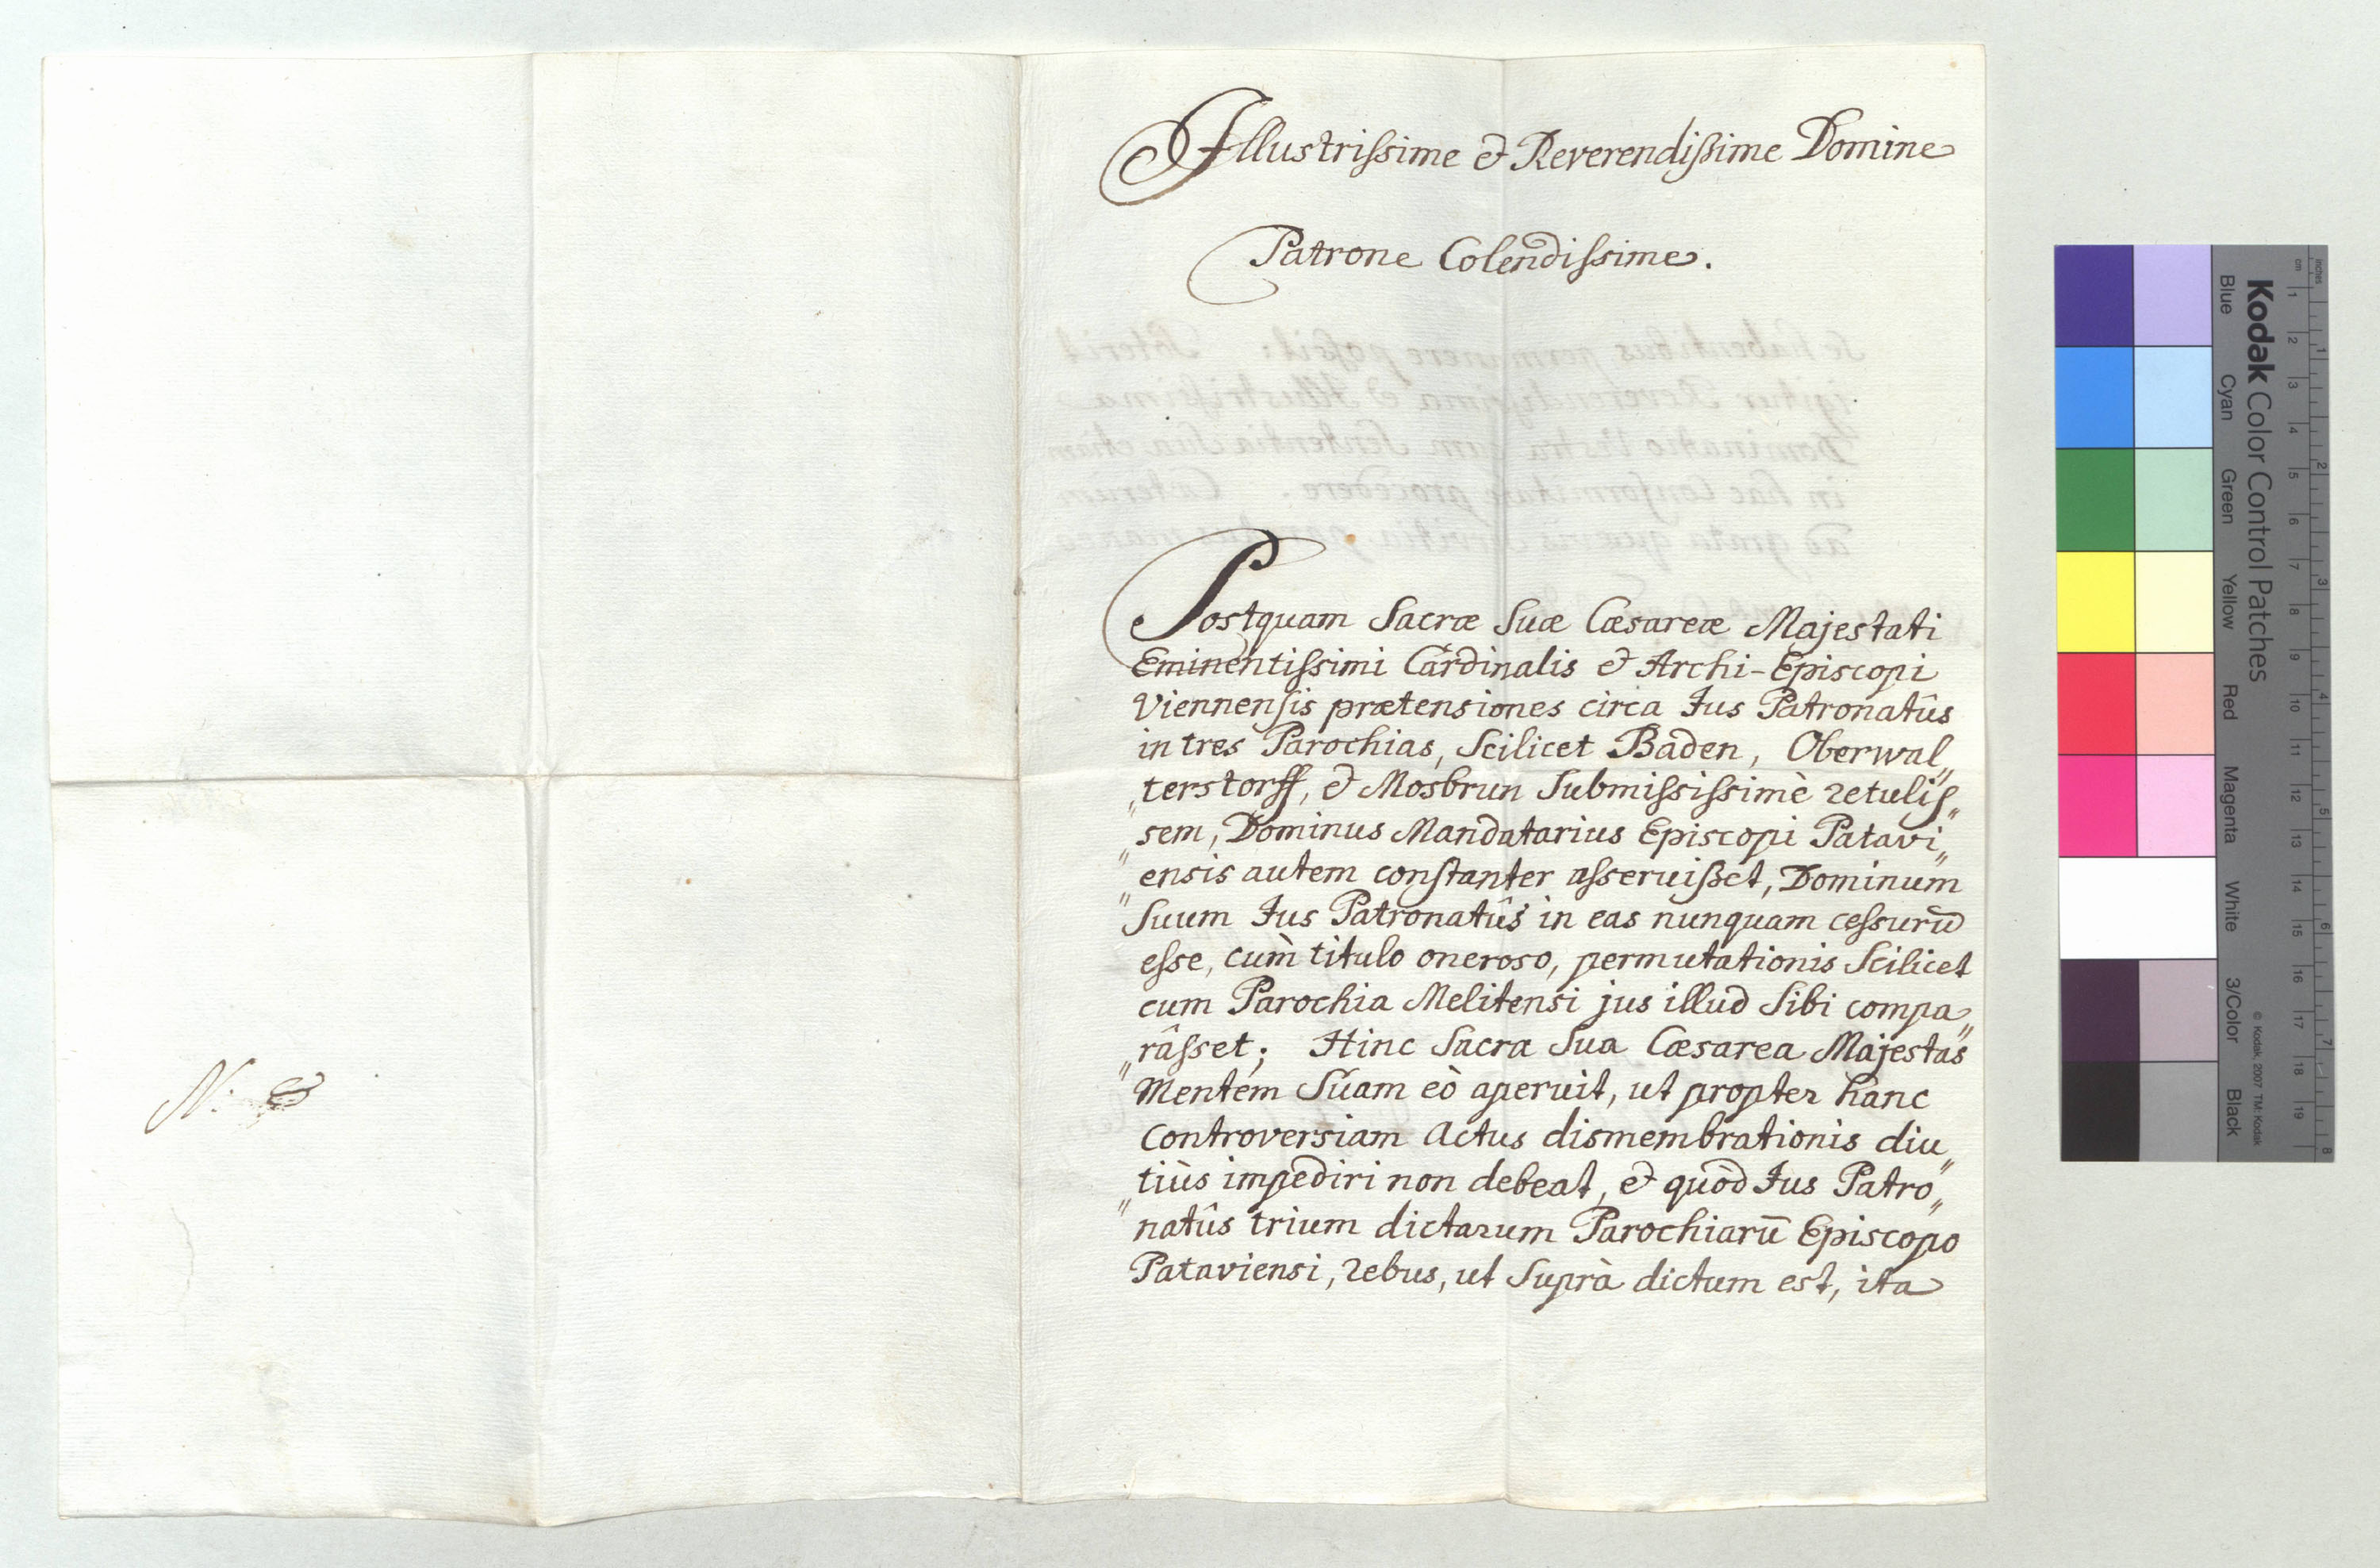 N:
Illustrissime & Reverendissime Domine
Patrone Colendissime.
Postquam Sacræ Suæ Cæsareæ Majestati
Eminentissimi Cardinalis & Archi-Episcopi
Viennensis prætensiones circa Jus Patronatûs
in tres Parochias, Scilicet Baden, Oberwal„
„terstorff, & Mosbrun Submississimè retulis„
„sem, Dominus Mandatarius Episcopi Patavi„
„ensis autem constanter asseruisset, Dominum
Suum Jus Patronatûs in eas nunquam cessurū
esse, cùm titulo oneroso, permutationis Scilicet
cum Parochia Melitensi jus illud Sibi compa„
„râsset; Hinc Sacra Sua Cæsarea Majestas
Mentem Suam eò aperuit, ut propter hanc
Controversiam Actus dismembrationis diu„
„tiùs impediri non debeat, & quòd Jus Patro„
natûs trium dictarum Parochiarū Episcopo
Pataviensi, rebus, ut Suprà dictum est, ita
Kodak Color Control Patches
Blue Cyan Green Yellow Red Magenta White 3/Color Black
© Kodak, 2007 TM: Kodak
inches 1 2 3 4 5 6 7 8
cm 1 2 3 4 5 6 7 8 9 10 11 12 13 14 15 16 17 18 19